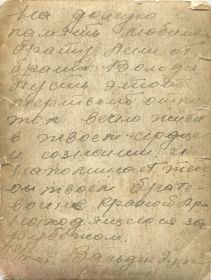 На долгую
память любимому
брату Лени от
брата Володи
Пусть этот
мертвый отпеча
ток вечно живет
в твоем сердце
и сознании и
напоминает тебе
о твоем брате-
воине Красной Арм.
находящегося за
рубежом.